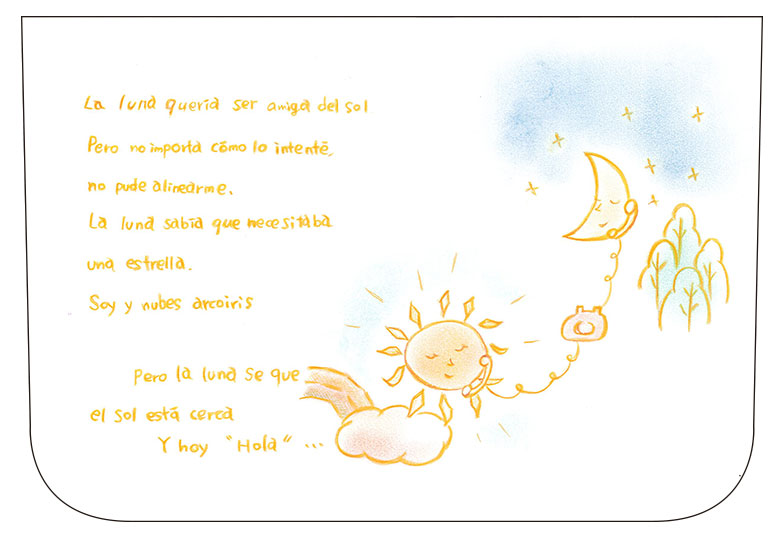 La luna quería ser amiga del sol
Pero no importa cómo lo intenté,
no pude alinearme.
La luna sabía que necesitaba
una estrella.
Soy y nubes arcoiris
Pero la luna se que
el sol está cerca
Y hoy "Hola" ...